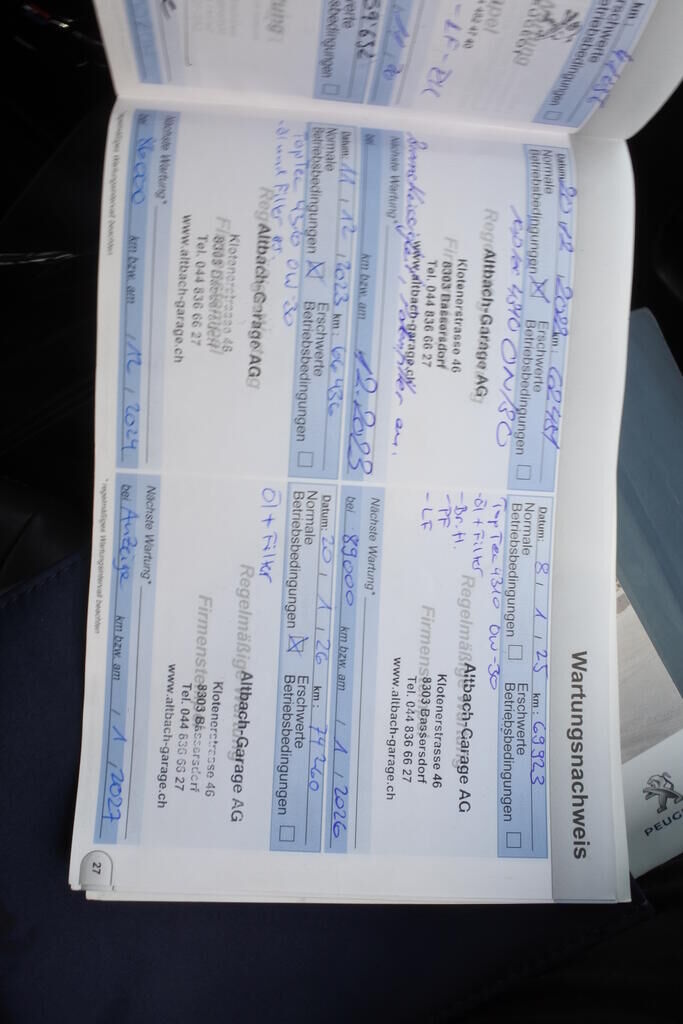 Wartungsnachweis
Datum: 20, 12, 2022 km: 62451
Normale Betriebsbedingungen ☒ Erschwerte Betriebsbedingungen ☐
0W/30
Altbach-Garage AG
Klotenerstrasse 46
8303 Bassersdorf
Tel. 044 836 66 27
www.altbach-garage.ch
Nächste Wartung*
bei km bzw. am 12.2023
Datum: 11, 12, 2023 km: 66436
Normale Betriebsbedingungen ☒ Erschwerte Betriebsbedingungen ☐
TopTec 4310 0W30
Regelmäßige Wartung
Altbach-Garage AG
Klotenerstrasse 46
8303 Bassersdorf
Tel. 044 836 66 27
www.altbach-garage.ch
Nächste Wartung*
bei 86000 km bzw. am , 12, 2024
Datum: 8, 1, 25 km: 69923
Normale Betriebsbedingungen ☐ Erschwerte Betriebsbedingungen ☐
TopTec 4310 0W-30
-Öl+Filter
-Br.fl.
-PF
-LF
Regelmäßige Wartung
Altbach-Garage AG
Klotenerstrasse 46
8303 Bassersdorf
Tel. 044 836 66 27
www.altbach-garage.ch
Nächste Wartung*
bei 89000 km bzw. am , 1, 2026
Datum: 20, 1, 26 km: 74260
Normale Betriebsbedingungen ☒ Erschwerte Betriebsbedingungen ☐
Öl+Filter
Regelmäßige Wartung
Altbach-Garage AG
Klotenerstrasse 46
8303 Bassersdorf
Tel. 044 836 66 27
www.altbach-garage.ch
Nächste Wartung*
bei Anzeige km bzw. am , 1, 2027
* regelmäßiges Wartungsintervall beachten
27
PEUG